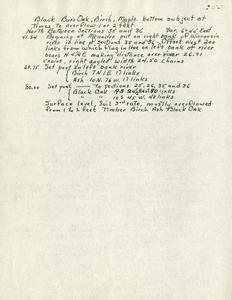 Black Burr Oak, Birch, Maple bottom subject at
Times to overflow 1 or 2 feet
North Between Sections 35 and 36 Var. 6°
Beginning at Meander post on right bank of Wisconsin
river in line of Sections 35 and 36 - Offset West 200
links from which flag in line on left bank of river
bears making distance over river 26.91
chains, right angled width 24.50 chains
Set post on left bank river
Birch N 1 E 17 links
Ash 76 W. 17 links
80.00 Set post to Sections 25, 26, 35 and 36
Black Oak links
" " 45 W. links
Surface level, Soil 3rd rate, mostly overflowed
from 1 to 3 feet Timber Birch Ash Black Oak